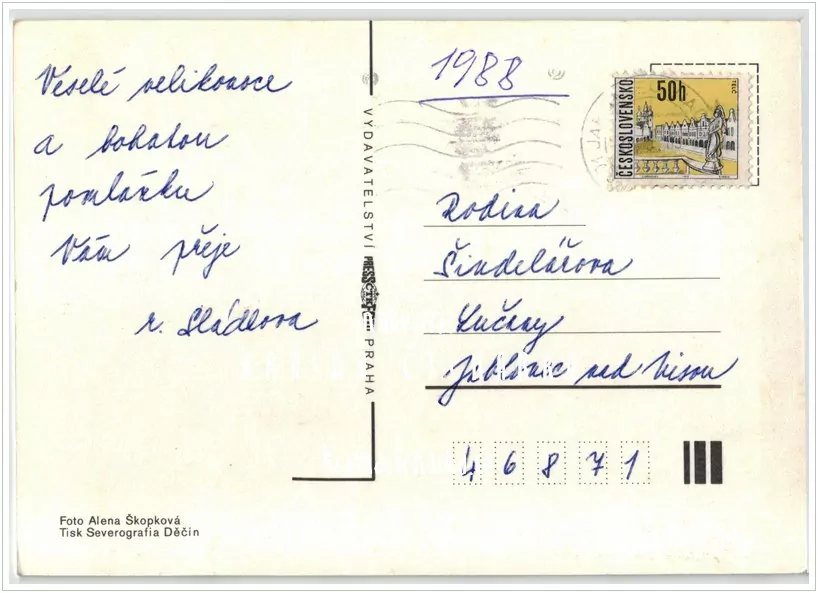 Veselé velikonoce
a bohatou
pomlázku
Vám přeje
r. Sládkova
VYDAVATELSTVÍ PRESSFOTO PRAHA
1988
ČESKOSLOVENSKO
50h
TELČ
Rodina
Šindelářova
Lučany
Jablonec nad Nisou
46871
Foto Alena Škopková
Tisk Severografia Děčín